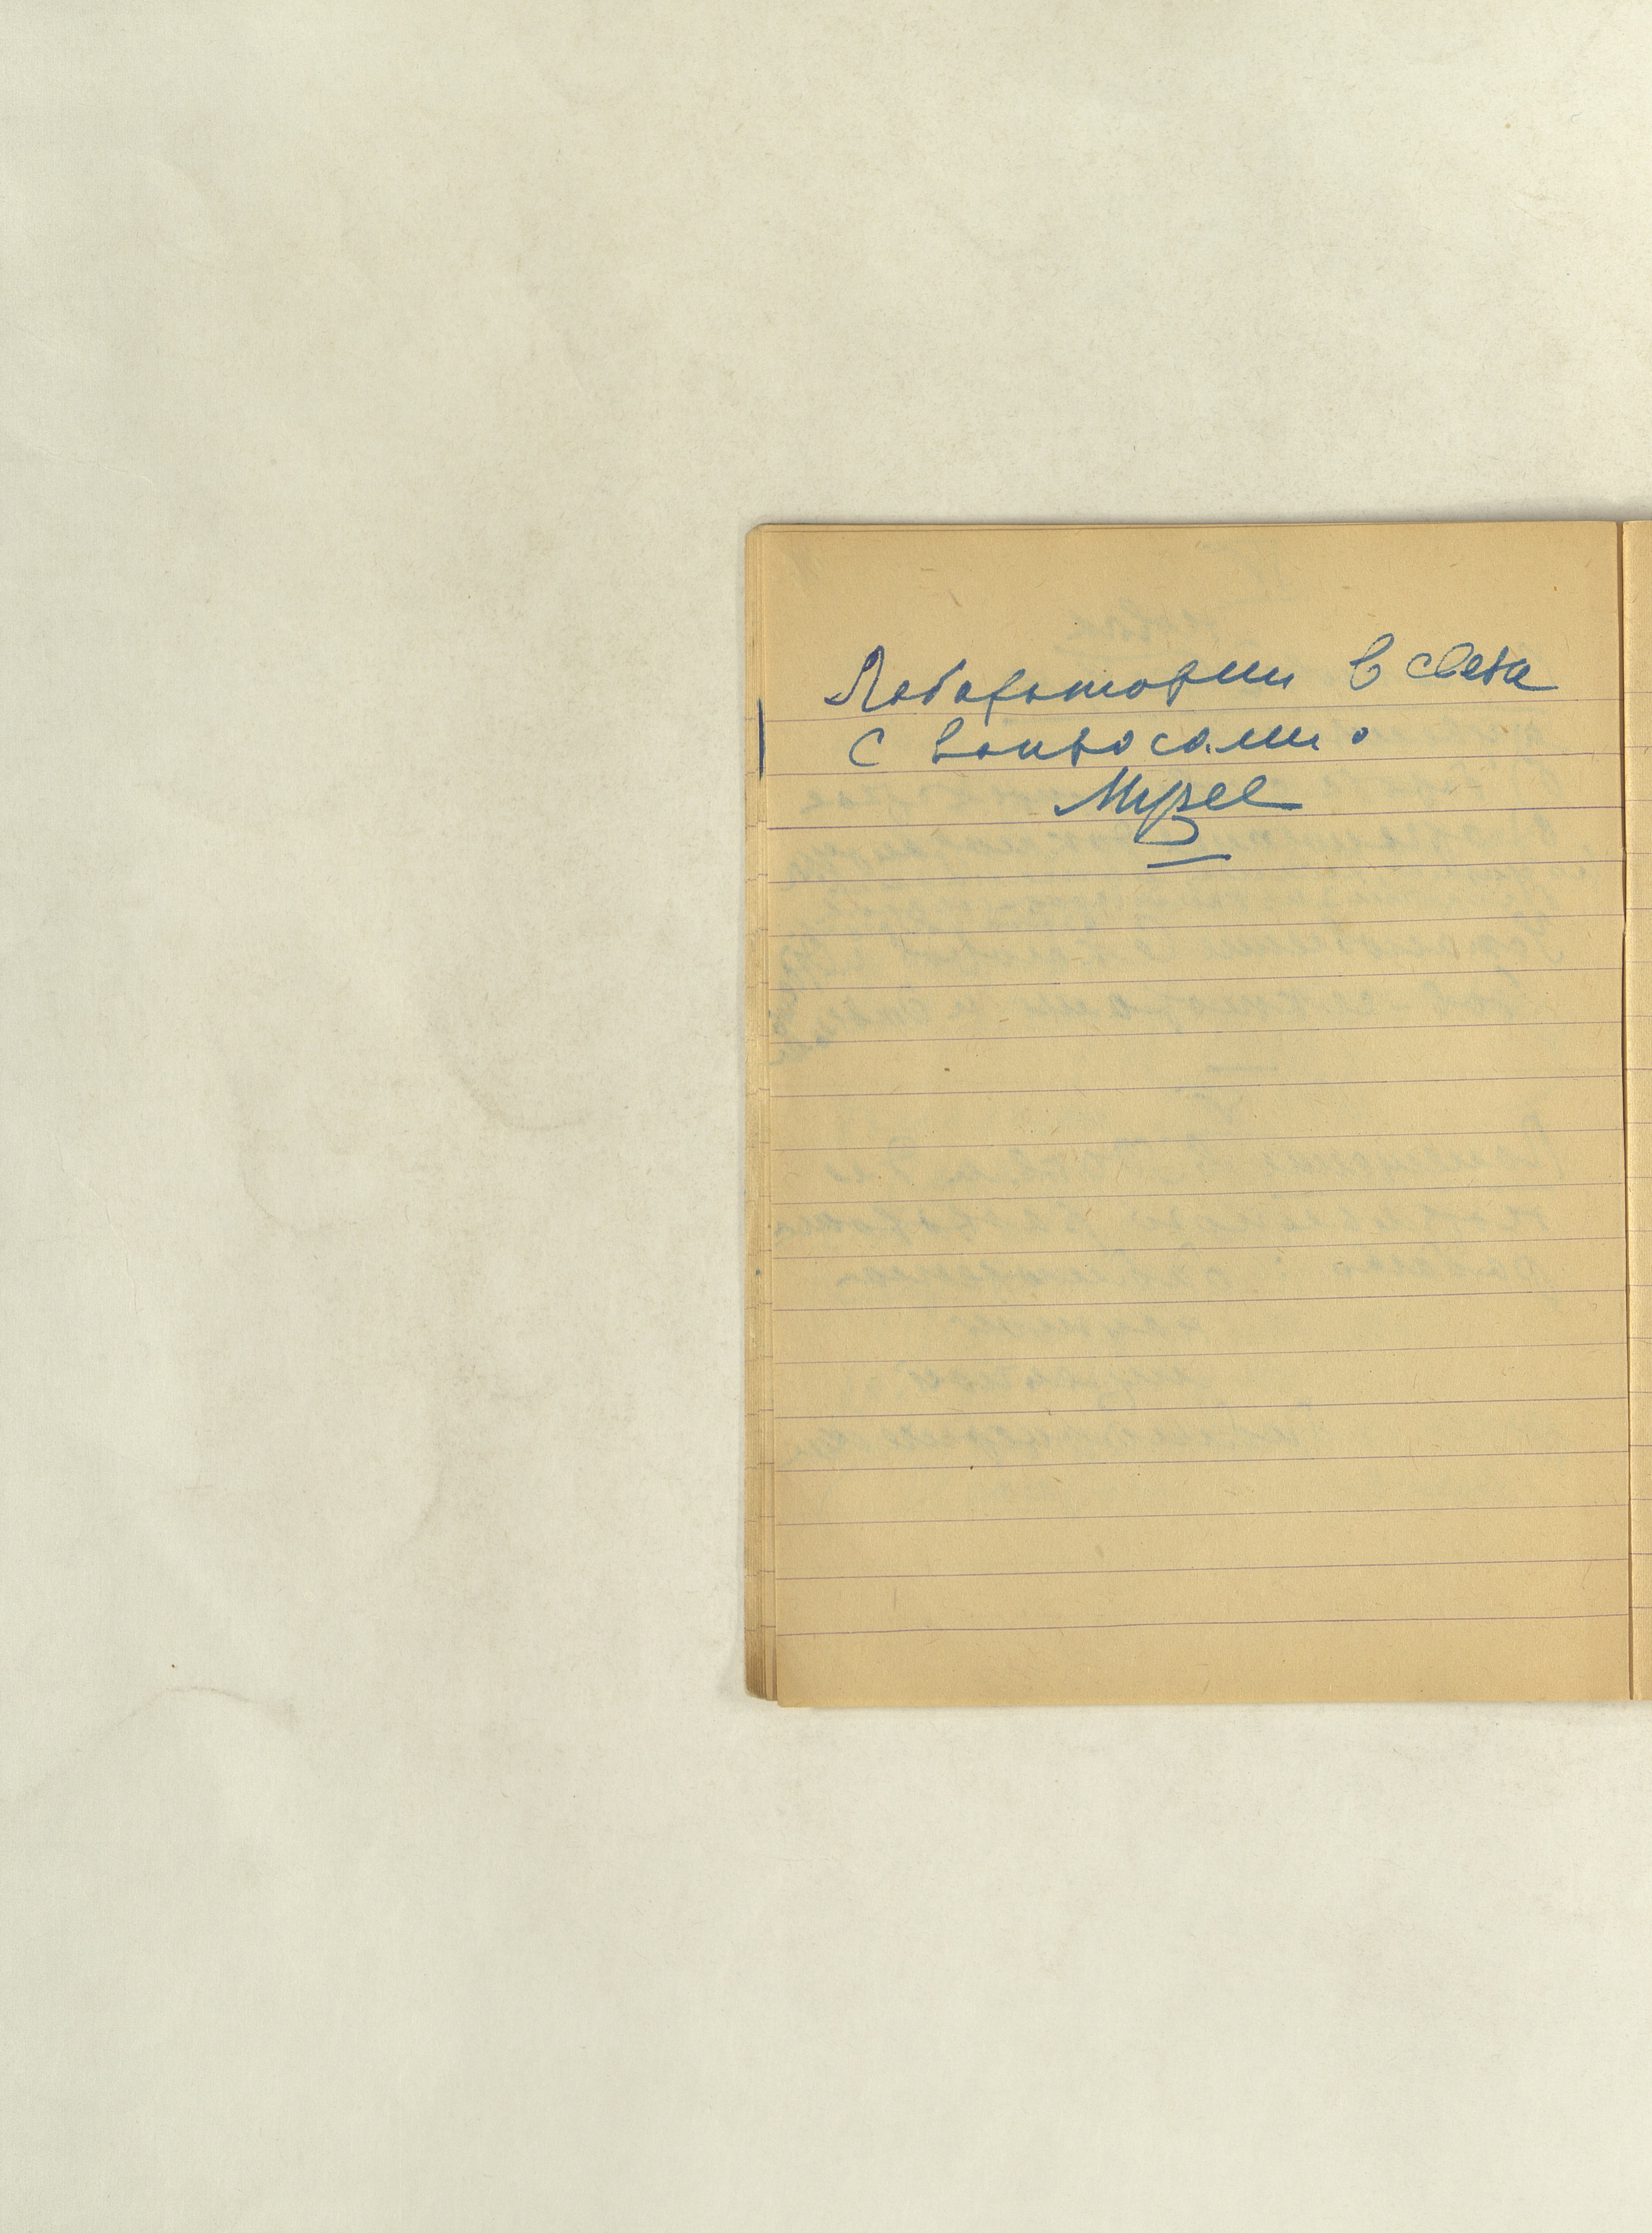 Лаборатории в связи
с вопросами о
Музее